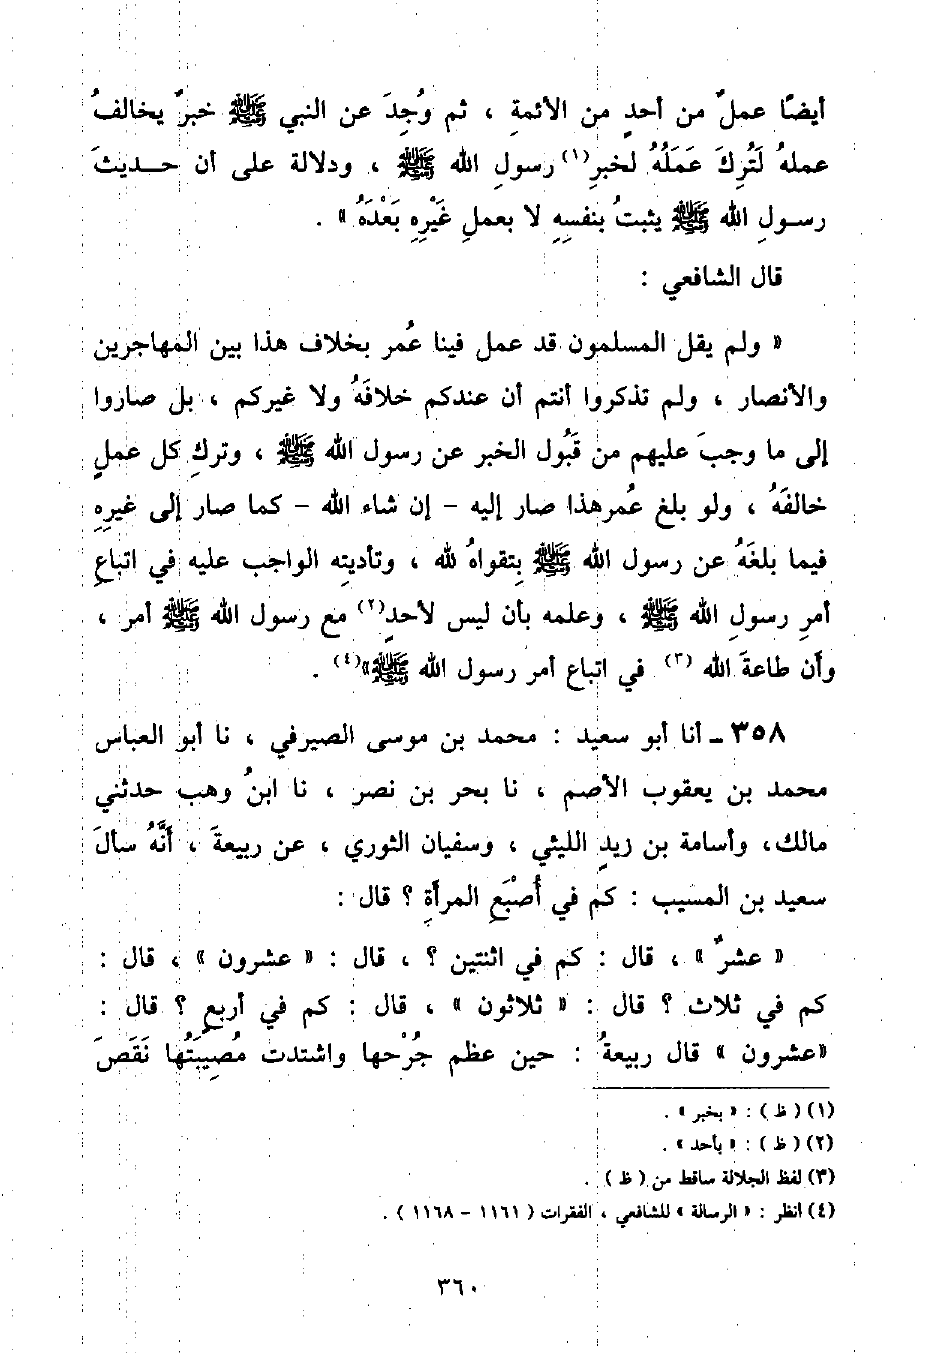 أيضًا عملٌ من أحدٍ من الأئمةِ ، ثم وُجِدَ عن النبي ﷺ خبرٌ يخالفُ
عملهُ لَتُرِكَ عَمَلُهُ لخبرِ(١) رسولِ الله ﷺ ، ودلالة على أن حـديثَ
رسـولِ الله ﷺ يثبتُ بنفسِهِ لا بعملِ غَيْرِهِ بَعْدَهُ » .
قال الشافعي :
« ولم يقل المسلمون قد عمل فينا عُمر بخلاف هذا بين المهاجرين
والأنصار ، ولم تذكروا أنتم أن عندكم خلافَهُ ولا غيركم ، بل صاروا
إلى ما وجبَ عليهم من قَبُول الخبر عن رسول الله ﷺ ، وتركِ كل عملٍ
خالفَهُ ، ولو بلغ عُمرهذا صار إليه – إن شاء الله – كما صار إلى غيرِهِ
فيما بلغَهُ عن رسول الله ﷺ بِتقواهُ لله ، وتأديتِه الواجب عليه في اتباعِ
أمرِ رسولِ الله ﷺ ، وعلمه بأن ليس لأحدٍ(٢) مع رسول الله ﷺ أمر ،
وأن طاعةَ الله (٣) في اتباع أمر رسول الله ﷺ»(٤) .
٣٥٨ ـ أنا أبو سعيد : محمد بن موسى الصيرفي ، نا أبو العباس
محمد بن يعقوب الأصم ، نا بحر بن نصر ، نا ابنُ وهب حدثني
مالك، وأسامة بن زيدٍ الليثي ، وسفيان الثوري ، عن ربيعةَ ، أَنَّهُ سألَ
سعيد بن المسيب : كم في أُصْبَعِ المرأةِ ؟ قال :
« عشرٌ » ، قال : كم في اثنتين ؟ ، قال : « عشرون » ، قال :
كم في ثلاث ؟ قال : « ثلاثون » ، قال : كم في أربعٍ ؟ قال :
«عشرون » قال ربيعةُ : حين عظم جُرْحها واشتدت مُصِيبَتُها نَقَصَ
(١) ( ظ ) : « بخبر » .
(٢) ( ظ ) : « بأحد » .
(٣) لفظ الجلالة ساقط من ( ظ ) .
(٤) انظر : « الرسالة » للشافعي ، الفقرات ( ١١٦١ – ١١٦٨ ) .
٣٦٠